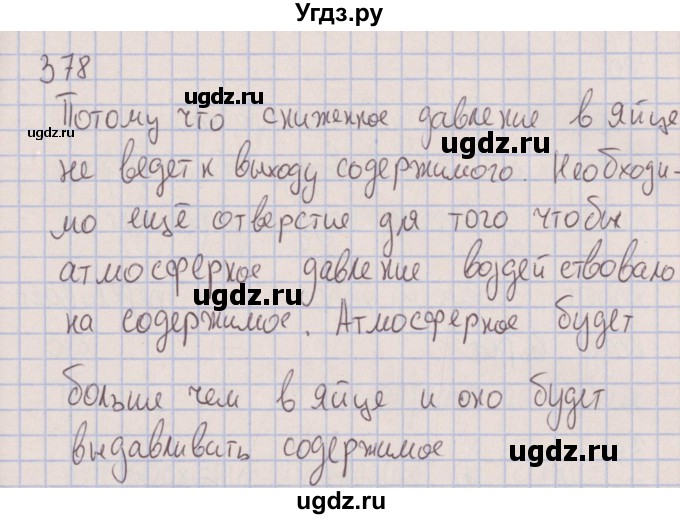 Угдз.ру
378
ugdz.ru
Потому что сниженное давление в яйце
ugdz.ru
ugdz.ru
не ведет к выходу содержимого. Необходи-
мо ещё отверстие для того чтобы
ugdz.ru
атмосферное давление воздействовало
ugdz.ru
на содержимое. Атмосферное будет
больше чем в яйце и оно будет
ugdz.ru
выдавливать содержимое
ugdz.ru
ugdz.ru